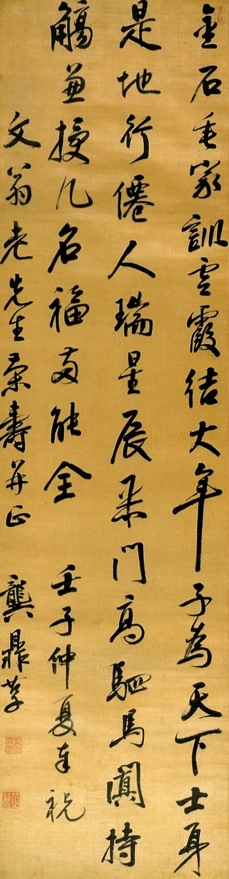 金石垂家訓雲霞結大年子為天下士身
是地行僊人瑞星辰采門高駟馬闐持
觴兼授几名福兩能全 壬子仲夏奉祝
文翁老先生榮壽并正 龔鼎孳